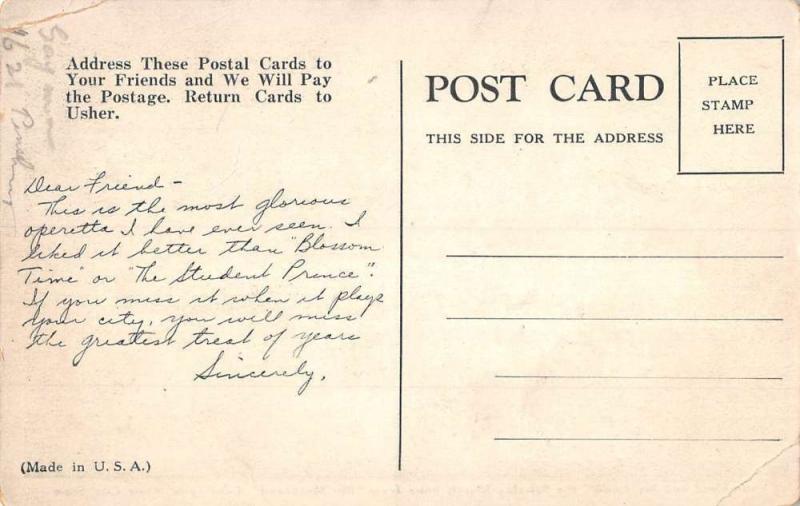 Address These Postal Cards to
Your Friends and We Will Pay
the Postage. Return Cards to
Usher.
Dear Friend-
This is the most glorious
operetta I have ever seen. I
liked it better than "Blossom
Time" or "The Student Prince".
If you miss it when it plays
your city, you will miss
the greatest treat of years
Sincerely,
(Made in U. S. A.)
POST CARD
THIS SIDE FOR THE ADDRESS
PLACE
STAMP
HERE